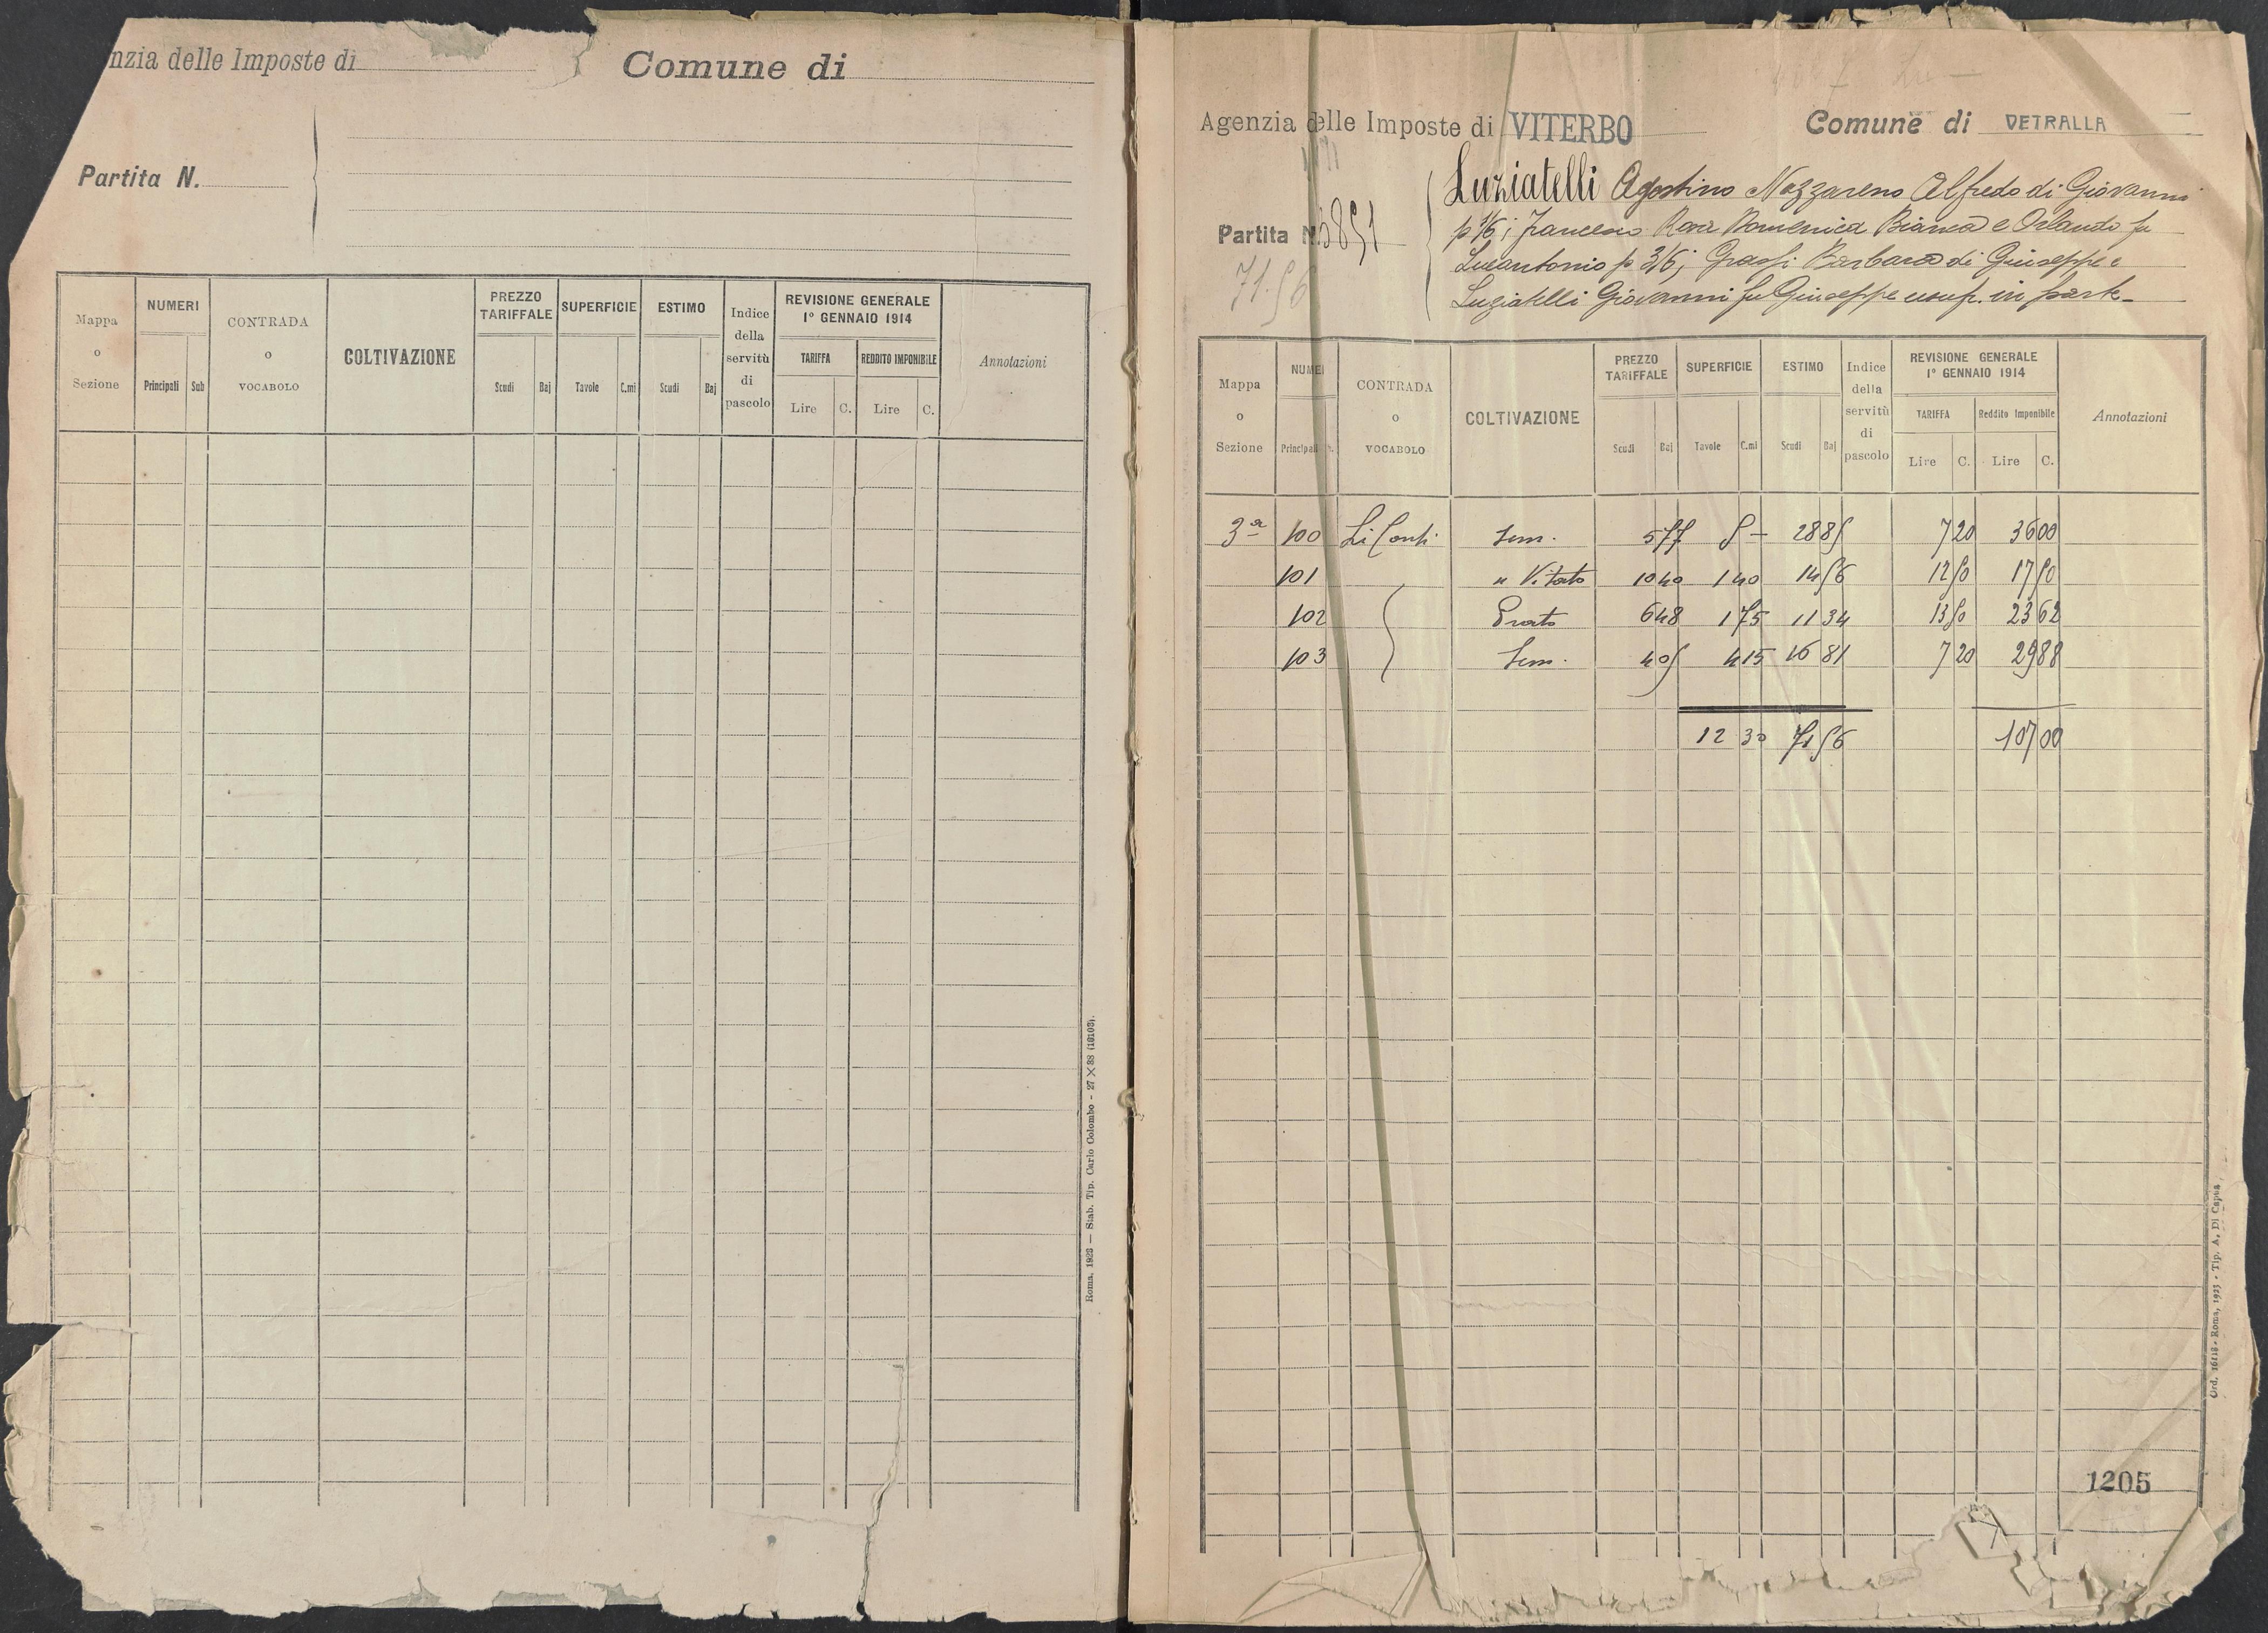 nzia delle Imposte di
Comune di
Partita N.
Mappa o Sezione
NUMERI
Principali Sub
CONTRADA o VOCABOLO
COLTIVAZIONE
PREZZO TARIFFALE
Scudi Baj
SUPERFICIE
Tavole C.mi
ESTIMO
Scudi Baj
Indice della servitù di pascolo
REVISIONE GENERALE
1° GENNAIO 1914
TARIFFA REDDITO IMPONIBILE
Lire C. Lire C.
Annotazioni
Roma, 1923 — Stab. Tip. Carlo Colombo - 27 × 38 (10103).
Agenzia delle Imposte di VITERBO
Comune di VETRALLA
Partita N. 3851
71.56
Luziatelli Agostino Nazzareno Alfredo di Giovanni
p 1/6; Francesco Rosa Domenica Bianca e Orlando fu
Lucantonio p 3/6; Grassi Barbara di Giuseppe e
Luziatelli Giovanni fu Giuseppe usuf. in parte
Mappa o Sezione
NUMERI
Principali
CONTRADA o VOCABOLO
COLTIVAZIONE
PREZZO TARIFFALE
Scudi Baj
SUPERFICIE
Tavole C.mi
ESTIMO
Scudi Baj
Indice della servitù di pascolo
REVISIONE GENERALE
1° GENNAIO 1914
TARIFFA Reddito Imponibile
Lire C. Lire C.
Annotazioni
3ª 100 Li Conti Sem. 5 77 5 – 28 85 7 20 36 00
101 " Vitato 10 40 1 40 14 56 12 50 17 50
102 Prato 6 48 1 75 11 34 13 50 23 62
103 Sem. 4 05 4 15 16 81 7 20 29 88
12 30 71 56 107 00
1205
Ord. 16118 - Roma, 1923 - Tip. A. Di Capua